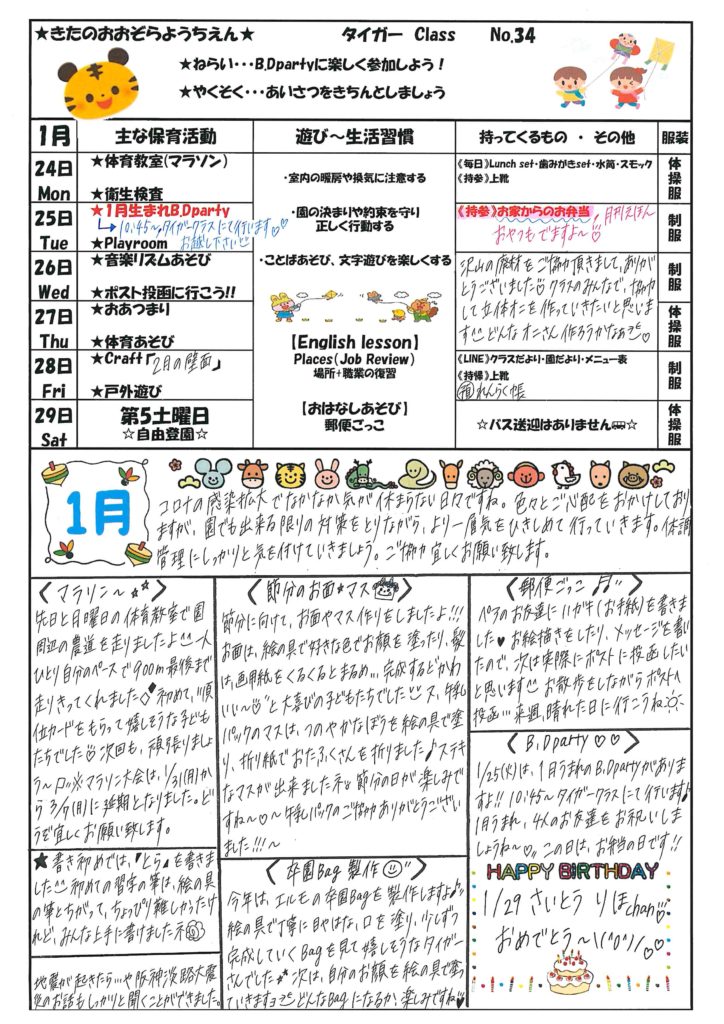 ★きたのおおぞらようちえん★ タイガー Class No.34
★ねらい・・・B.Dpartyに楽しく参加しよう！
★やくそく・・・あいさつをきちんとしましょう
1月 主な保育活動 遊び～生活習慣 持ってくるもの ・ その他 服装
24日 Mon
★体育教室(マラソン)
★衛生検査
《毎日》Lunch set・歯みがきset・水筒・スモック
《持参》上靴
体操服
25日 Tue
★1月生まれB.Dparty
↳10:45～タイガークラスにて行います♡♡
お越し下さい
★Playroom
《持参》お家からのお弁当、月刊えほん
おやつもでますよ～
制服
26日 Wed
★音楽リズムあそび
★ポスト投函に行こう!!
制服
27日 Thu
★おあつまり
★体育あそび
体操服
沢山の廃材をご協力頂きまして、ありが
とうございました クラスのみんなで、協力
して立体オニを作っていきたいと思いま
す どんなオニさん作ろうかなぁ♡
28日 Fri
★Craft「2月の壁面」
★戸外遊び
《LINE》クラスだより・園だより・メニュー表
《持帰》上靴
れんらく帳
制服
29日 Sat
第5土曜日
☆自由登園☆
☆バス送迎はありません☆
体操服
・室内の暖房や換気に注意する
・園の決まりや約束を守り
正しく行動する
・ことばあそび、文字遊びを楽しくする
【English lesson】
Places(Job Review)
場所+職業の復習
【おはなしあそび】
郵便ごっこ
1月
コロナの感染拡大でなかなか気が休まらない日々ですね。色々とご心配をおかけしており
ますが、園でも出来る限りの対策をとりながら、より一層気をひきしめて行っていきます。体調
管理にしっかりと気を付けていきましょう。ご協力宜しくお願い致します。
〈マラソン～☆☆〉
先日と月曜日の体育教室で園
周辺の農道を走りましたよ 一人
ひとり自分のペースで900m最後まで
走りきってくれました 初めて、"順
位カードをもらって嬉しそうな子ども
たちでした 次回も、頑張りましょ
う～♫※マラソン大会は、1/31(月)から
3/7(月)に延期となりました。ど
うぞ宜しくお願い致します。
★書き初めでは、『とら』を書きま
した 初めての習字の筆は、絵の具
の筆とちがって、ちょっぴり難しかったけ
れど、みんな上手に書けました
地震が起きたら…や阪神淡路大震
災のお話もしっかりと聞くことができました。
〈節分のお面★マス〉
節分に向けて、お面やマス作りをしましたよ!!!
お面は、絵の具で好きな色でお顔を塗ったり、髪
は、画用紙をくるくるとまるめ… 完成すると"かわ
いい～"と大喜びの子どもたちでした マス、牛乳
パックのマスは、つのやかなぼうを絵の具で塗
り、折り紙でおたふくさんを折りました♪ステキ
なマスが出来ました 節分の日が楽しみで
すね～♡～牛乳パックのご協力ありがとうござい
ました!!!～
〈卒園Bag製作〉
今年は、エルモの卒園Bagを製作しますよ♪
絵の具で丁寧に目やはな、口を塗り、少しずつ
完成していくBagを見て嬉しそうなタイガー
さんでした 次は、自分のお顔を絵の具で塗っ
ていきますヨ どんなBagになるか、楽しみですね
〈郵便ごっこ♫〉
ペアのお友達にハガキ(お手紙)を書きま
した♥お絵描きをしたり、メッセージを書い
たので、次は実際にポストに投函したい
と思います お散歩をしながらポストへ
投函…来週、晴れた日に行こうね
〈B.Dparty♡♡〉
1/25(火)は、1月うまれのB.Dpartyがありま
すよ!! 10:45～タイガークラスにて行います♪
1月うまれ、4人のお友達をお祝いしま
しょうね～♡ この日は、お弁当の日です!!
HAPPY BIRTHDAY
1/29 さいとう りほchan
おめでとう～\(^o^)/♡♡